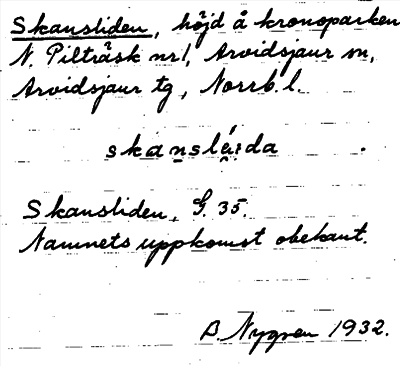 Skansliden, höjd å kronoparken
N. Pilträsk nr1, Arvidsjaur sn,
Arvidsjaur tg, Norrb. l.
Skansliden, G. 35.
Namnets uppkomst obekant.
B. Nygren 1932.